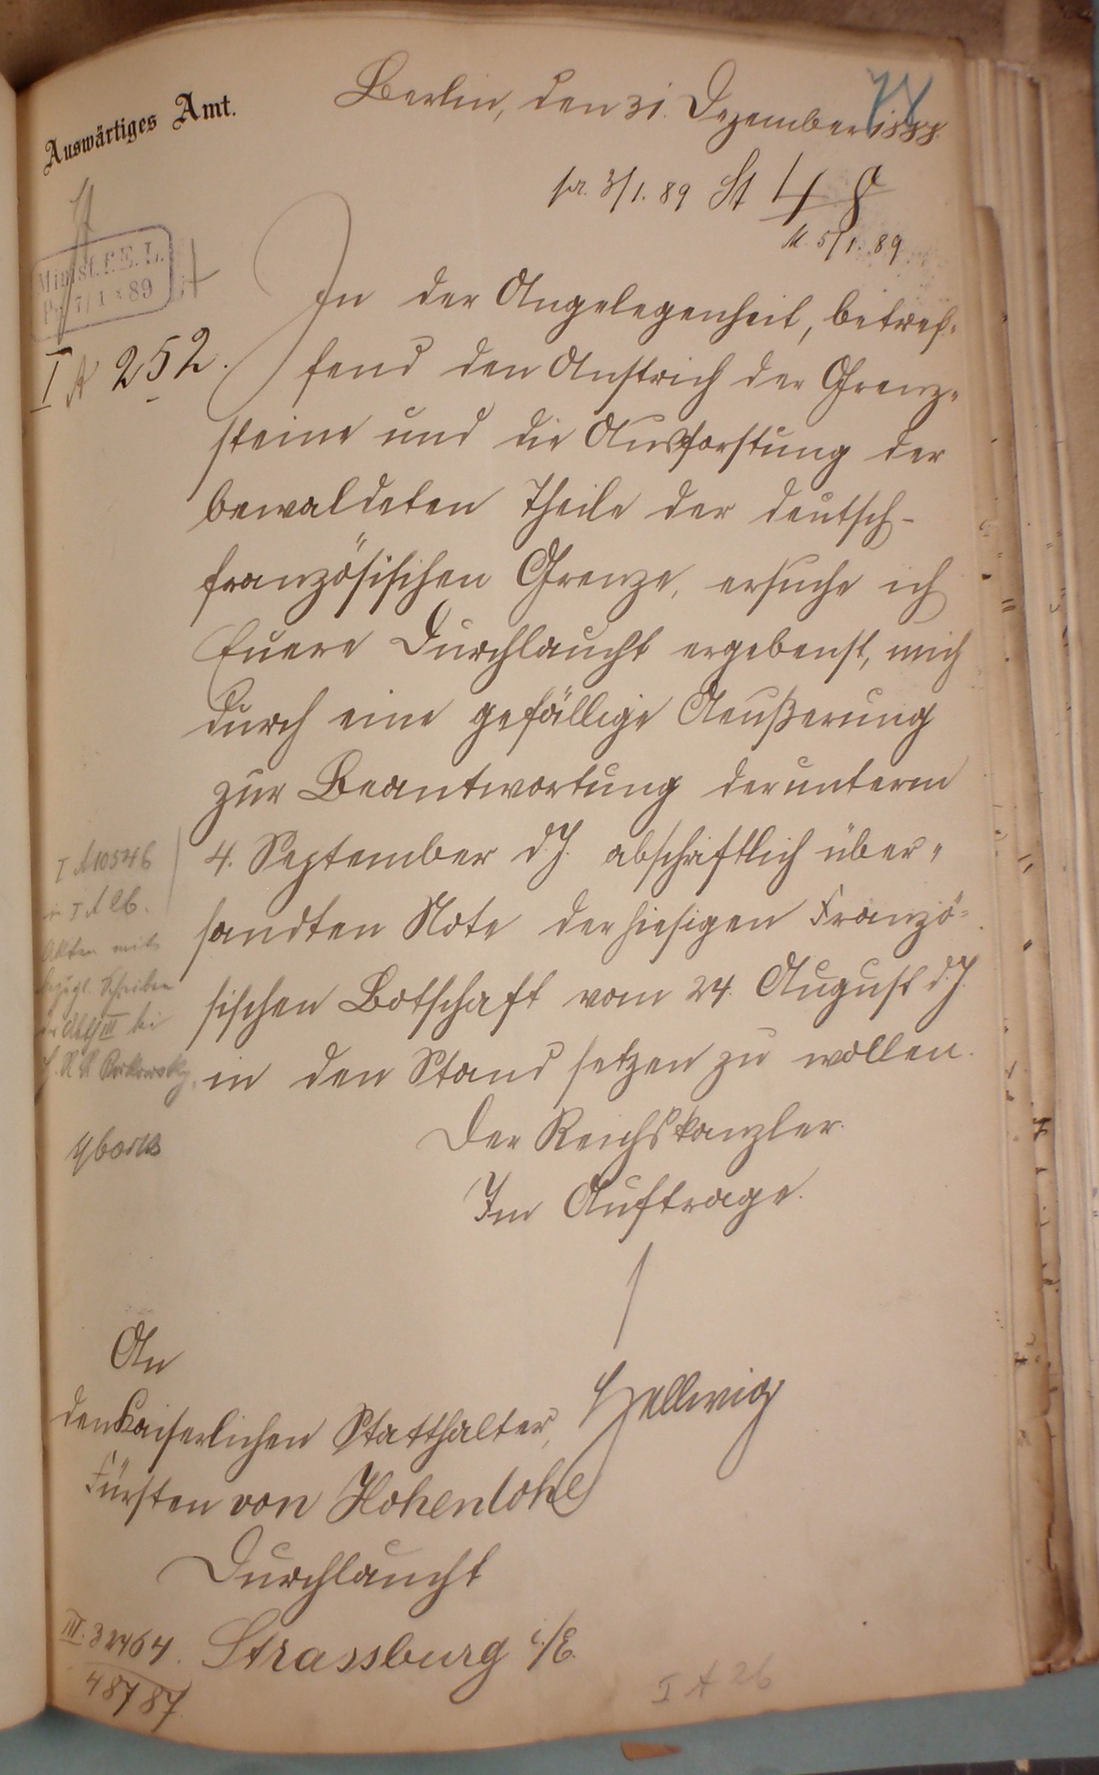 Auswärtiges Amt.
Berlin, den 31. Dezember 1888.
pr. 3/1. 89 St 48
M. 5/1. 89
Minist. f. E. L.
Pr. 7/1 89
I A 252.
In der Angelegenheit, betref-
fend den Anstrich der Grenz-
steine und die Ausforstung der
bewaldeten Theile der deutsch-
französischen Grenze, ersuche ich
Euere Durchlaucht ergebenst, mich
durch eine gefällige Aeußerung
zur Beantwortung der unterm
4. September d. J. abschriftlich über-
sandten Note der hiesigen Franzö-
sischen Botschaft vom 24. August d. J.
in den Stand setzen zu wollen.
Der Reichskanzler.
Im Auftrage.
Hellwig
I A 10546
I A 26.
Akten mit
bezügl. Schreiben
III bei
An
den Kaiserlichen Statthalter,
Fürsten von Hohenlohe
Durchlaucht
Strassburg i/E.
III. 32464.
48787
I A 26